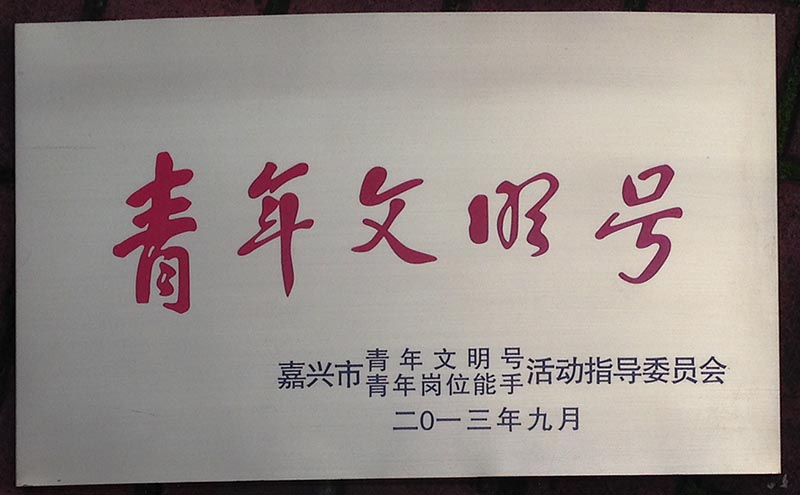 青年文明号
嘉兴市青年文明号活动指导委员会
青年岗位能手
二0一三年九月